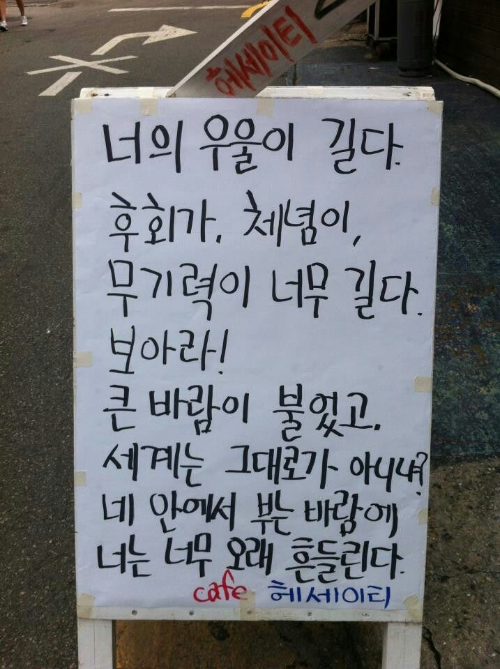 헤세이티
너의 우울이 길다.
후회가, 체념이,
무기력이 너무 길다.
보아라!
큰 바람이 불었고,
세계는 그대로가 아니냐?
네 안에서 부는 바람에
너는 너무 오래 흔들린다.
cafe 헤세이티